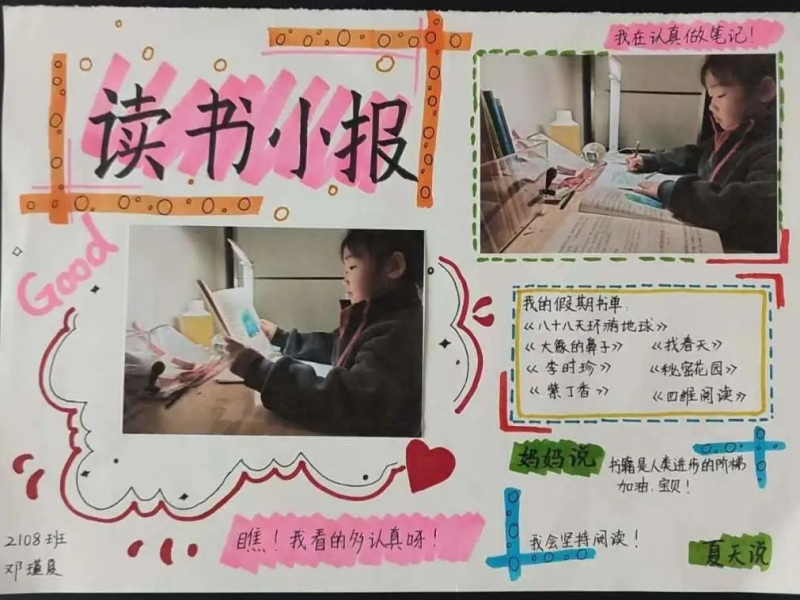 我在认真做笔记！
读书小报
Good
我的假期书单：
《八十八天环游地球》
《大象的鼻子》 《找春天》
《李时珍》 《秘密花园》
《紫丁香》 《四维阅读》
妈妈说
书籍是人类进步的阶梯
加油，宝贝！
瞧！我看的多认真呀！
我会坚持阅读！
夏天说
2108班
邓瑾夏